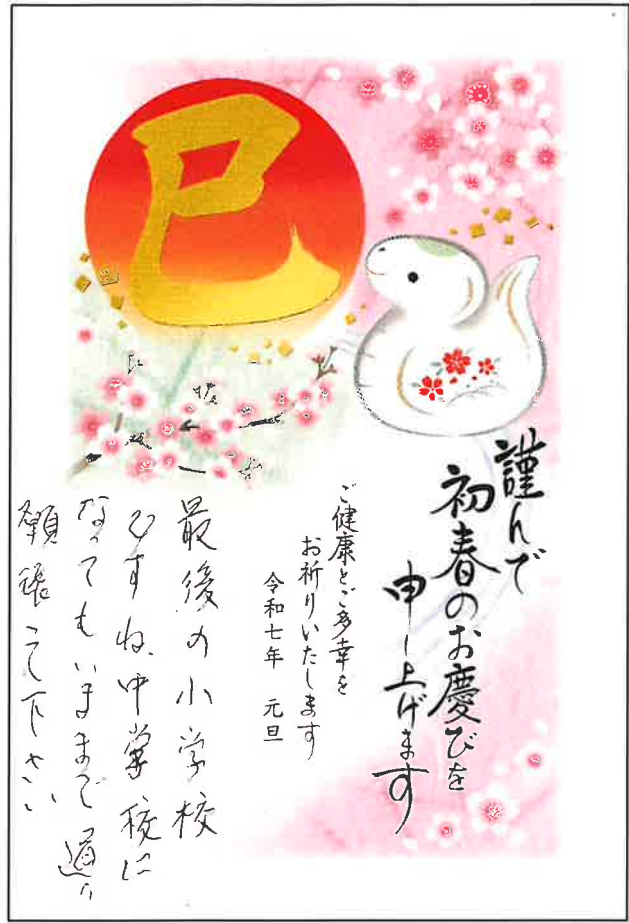 巳
謹んで
初春のお慶びを
申し上げます
ご健康とご多幸を
お祈りいたします
令和七年 元旦
最後の小学校
ですね、中学校に
なってもいままで通り
頑張って下さい